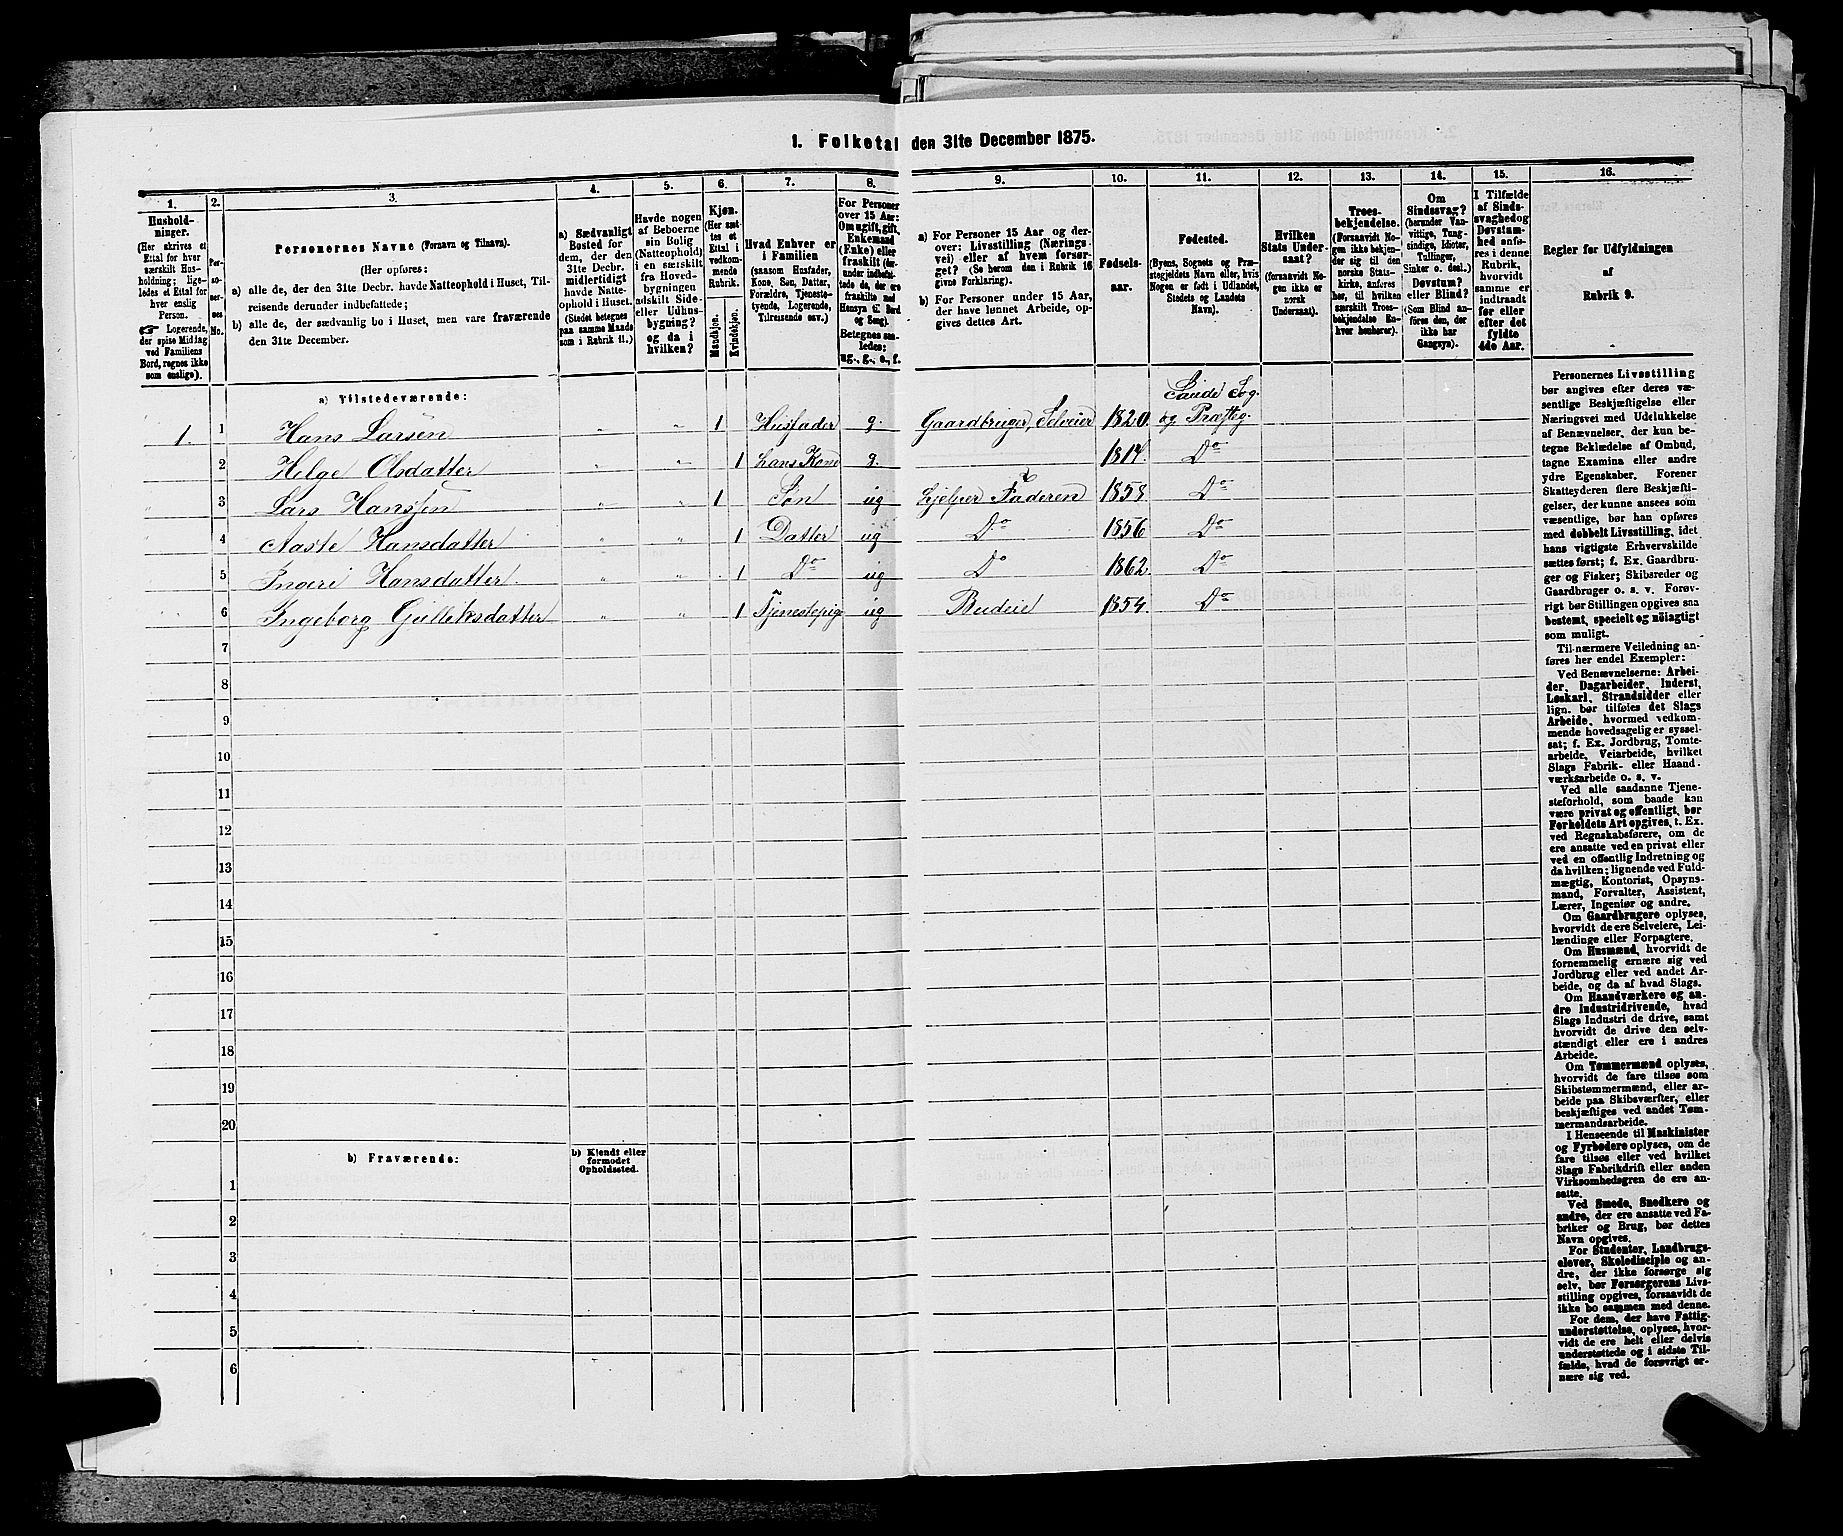 1. Folketal den 31te December 1875.
1.
2.
3.
4.
5.
6.
7.
8.
9.
10.
11.
12.
13.
14.
15.
16.
Hushold-
ninger.
(Her skrives et
Ettal for hver
særskilt Hus-
holdning; lige-
ledes et Ettal for
hver enslig
Person.
☞ Logerende,
der spise Middag
ved Familiens
Bord, regnes ikke
som enslige).
Per-
so-
ner-
nes
No.
Personernes Navne (Fornavn og Tilnavn).
(Her opføres:
a) alle de, der den 31te Decbr. havde Natteophold i Huset, Til-
reisende derunder indbefattede;
b) alle de, der sædvanlig bo i Huset, men vare fraværende
den 31te December.
a) Sædvanligt
Bosted for
dem, der den
31te Decbr.
midlertidigt
havde Natte-
ophold i Huset.
(Stedet betegnes
paa samme Maade
som i Rubrik 11.)
Havde nogen
af Beboerne
sin Bolig
(Natteophold)
i en særskilt
fra Hoved-
bygningen
adskilt Side-
eller Udhus-
bygning?
og da i
hvilken?
Kjøn.
(Her sæt-
tes et
Ettal i
vedkom-
mende
Rubrik.
Mandkjøn.
Kvindekjøn.
Hvad Enhver er
i Familien
(saasom Husfader,
Kone, Søn, Datter,
Forældre, Tjeneste-
tyende, Logerende,
Tilreisende osv.)
For Personer
over 15 Aar:
Om ugift, gift,
Enkemand
(Enke) eller
fraskilt (der-
under indbefat-
tede de, der ere
fraskilte med
Hensyn til Bord
og Seng).
Betegnes saa-
ledes:
ug., g., e., f.
a) For Personer 15 Aar og der-
over: Livsstilling (Nærings-
vei) eller af hvem forsør-
get? (Se herom den i Rubrik 16
givne Forklaring).
b) For Personer under 15 Aar,
der have lønnet Arbeide, op-
gives dettes Art.
Fødsels-
aar.
Fødested.
(Byens, Sognets og Præ-
stegjeldets Navn eller, hvis
Nogen er født i Udlandet,
Stedets og Landets
Navn).
Hvilken
Stats Under-
saat?
(forsaavidt No-
gen ikke er
norsk
Undersaat).
Troes-
bekjendelse.
(Forsaavidt No-
gen ikke bekjen-
der sig til den
norske Stats-
kirke, anføres
her, til hvilken
særskilt Troes-
bekjendelse En-
hver henhører).
Om
Sindssvag?
(herunder Van-
vittige, Tung-
sindige, Idioter,
Tullinger,
Sinker o. desl.)
Døvstum?
eller Blind?
(Som Blind an-
føres den, der
ikke har
Gangsyn).
I Tilfælde
af Sinds-
svaghed og
Døvstum-
hed anfø-
res i denne
Rubrik,
hvorvidt
samme er
indtraadt
før eller
efter det
fyldte
4de Aar.
Regler for Udfyldningen
af
Rubrik 9.
a) Tilstedeværende:
1. 1 Hans Larsen " " 1 Husfader g. Gaardbruger, Selveier 1820. Sande Sog. og Præsteg.
2 Helge Olsdatter " " 1 hans Kone g. 1814. Do
3 Lars Hanssen " " 1 Søn ug hjelper Faderen 1858 Do
4 Aaste Hansdatter " " 1 Datter ug Do 1856 Do
5 Ingeri Hansdatter " " 1 Do ug Do 1862 Do
6 Ingeborg Gulliksdatter " " 1 Tjenestepige ug Budeie 1854 Do
7
8
9
10
11
12
13
14
15
16
17
18
19
20
b) Fraværende:
b) Kjendt eller
formodet
Opholdssted.
1
2
3
4
5
6
Personernes Livsstilling
bør angives efter deres væ-
sentlige Beskjæftigelse eller
Næringsvei med Udelukkelse
af Benævnelser, der kun be-
tegne Beklædelse af Ombud,
tagne Examina eller andre
ydre Egenskaber. Forener
Skatteyderen flere Beskjæfti-
gelser, der kunne ansees som
væsentlige, bør han opføres
med dobbelt Livsstilling, idet
hans vigtigste Erhvervskilde
sættes først; f. Ex. Gaardbru-
ger og Fisker; Skibsreder og
Gaardbruger o. s. v. Forøv-
rigt bør Stillingen opgives saa
bestemt, specielt og nöiagtigt
som muligt.
Til nærmere Veiledning an-
føres her endel Exempler:
Ved Benævnelserne: Arbei-
der, Dagarbeider, Inderst,
Løskarl, Strandsidder eller
lign. bør tilføies det Slags
Arbeide, hvormed vedkom-
mende hovedsagelig er syssel-
sat; f. Ex. Jordbrug, Tomte-
arbeide, Veiarbeide, hvilket
Slags Fabrik- eller Haand-
værksarbeide o. s. v.
Ved alle saadanne Tjene-
steforhold, som baade kan
være privat og offentligt, bør
Forholdets Art opgives, t. Ex.
ved Regnskabsførere, om de
ere ansatte ved en privat eller
ved en offentlig Indretning og
da hvilken; lignende ved Fuld-
mægtig, Kontorist, Opsyns-
mand, Forvalter, Assistent,
Lærer, Ingeniør og andre.
Om Gaardbrugere oplyses,
hvorvidt de ere Selveiere, Lei-
lændinge eller Forpagtere.
Om Husmænd, hvorvidt de
fornemmelig ernære sig ved
Jordbrug eller ved andet Ar-
beide, og da af hvad Slags.
Om Haandværkere og an-
dre Industridrivende, hvad
Slags Industri de drive, samt
hvorvidt de drive den selv-
stændigt eller ere i andres
Arbeide.
Om Tømmermænd oplyses,
hvorvidt de fare tilsøs som
Skibstømmermænd, eller ar-
beide paa Skibsværfter, eller
beskjæftiges ved andet Tøm-
mermandsarbeide.
I Henseende til Maskinister
og Fyrbødere oplyses, om de
fare tilsøs eller ved hvilket
Slags Fabrikdrift eller anden
Virksomhedsgren de ere an-
satte.
Ved Smede, Snedkere og
andre, der ere ansatte ved Fa-
briker og Brug, bør dettes
Navn opgives.
For Studenter, Landbrugs-
elever, Skoledisciple og an-
dre, der ikke forsørge sig
selv, bør Forsørgerens Livs-
stilling opgives, forsaavidt de
ikke bo sammen med denne.
For dem, der have Fattig-
understøttelse, oplyses, hvor-
vidt de ere helt eller delvis
understøttede og i sidste Til-
fælde, hvad de forøvrigt er-
nære sig ved.